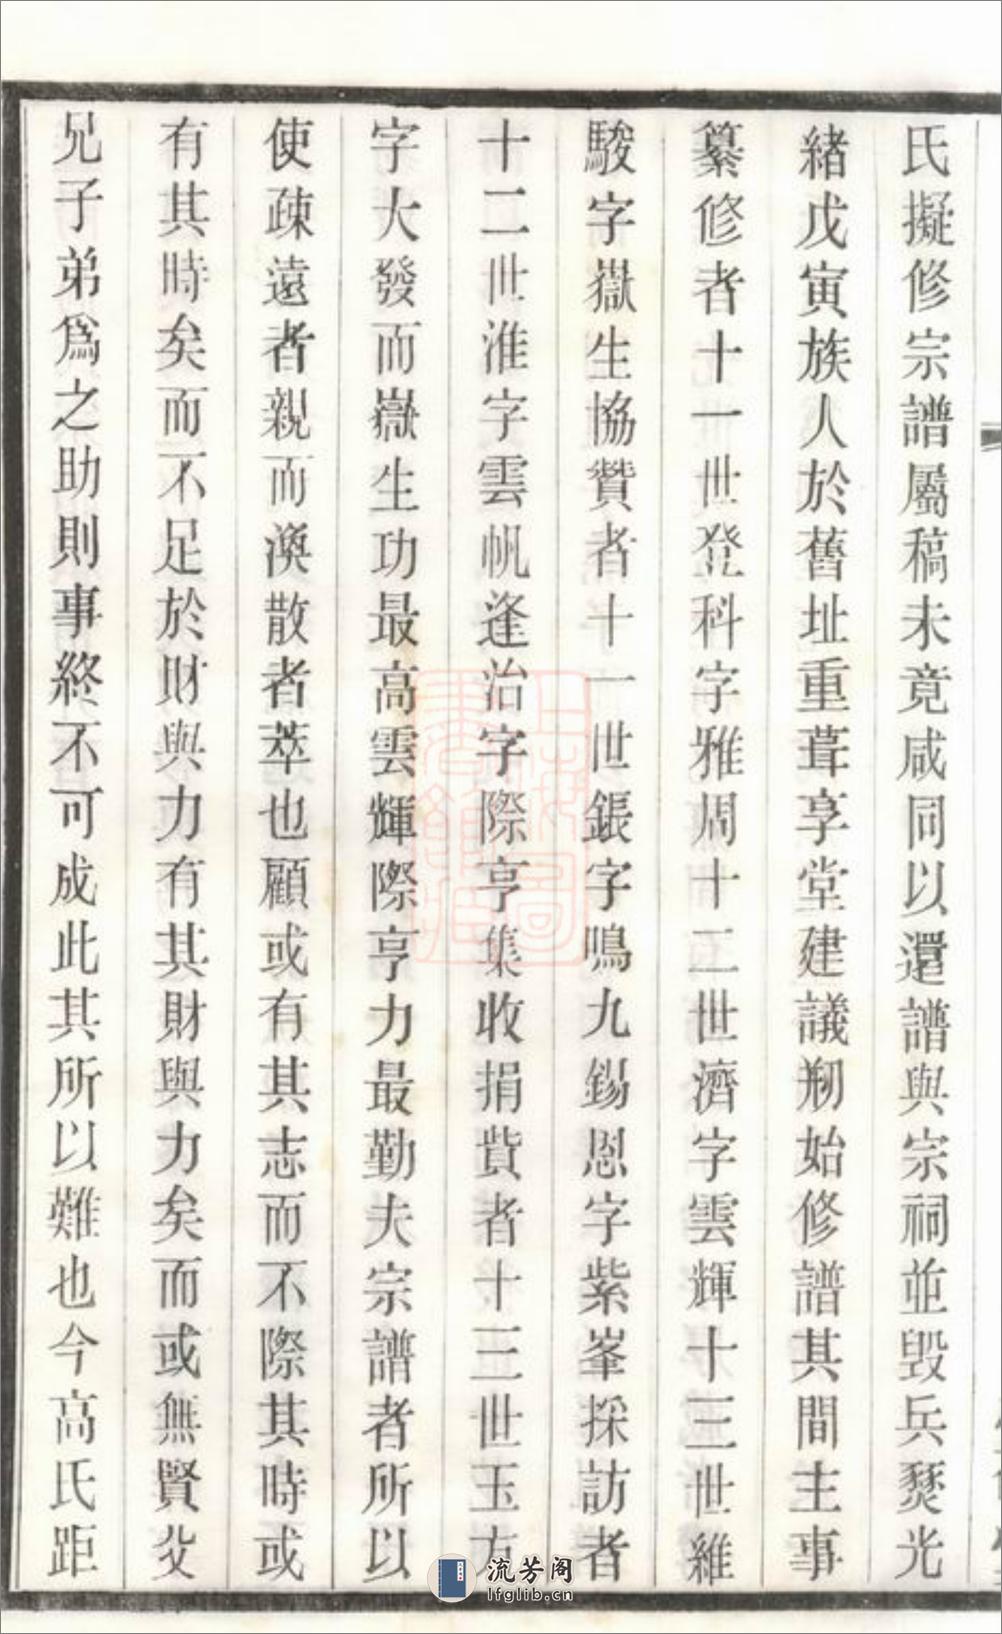 氏擬修宗譜屬稿未竟咸同以還譜與宗祠並毀兵燹光
緒戊寅族人於舊址重葺享堂建議剏始修譜其間主事
纂修者十一世登科字雅周十二世濟字雲輝十三世維
駿字嶽生協贊者十一世鋹字鳴九錫恩字紫峯採訪者
十二世淮字雲帆逢治字際亨集收捐貲者十三世玉方
字大發而嶽生功最高雲輝際亨力最勤夫宗譜者所以
使疎遠者親而渙散者萃也顧或有其志而不際其時或
有其時矣而不足於財與力有其財與力矣而或無賢父
兄子弟為之助則事終不可成此其所以難也今高氏距
流芳阁
lfglib.cn